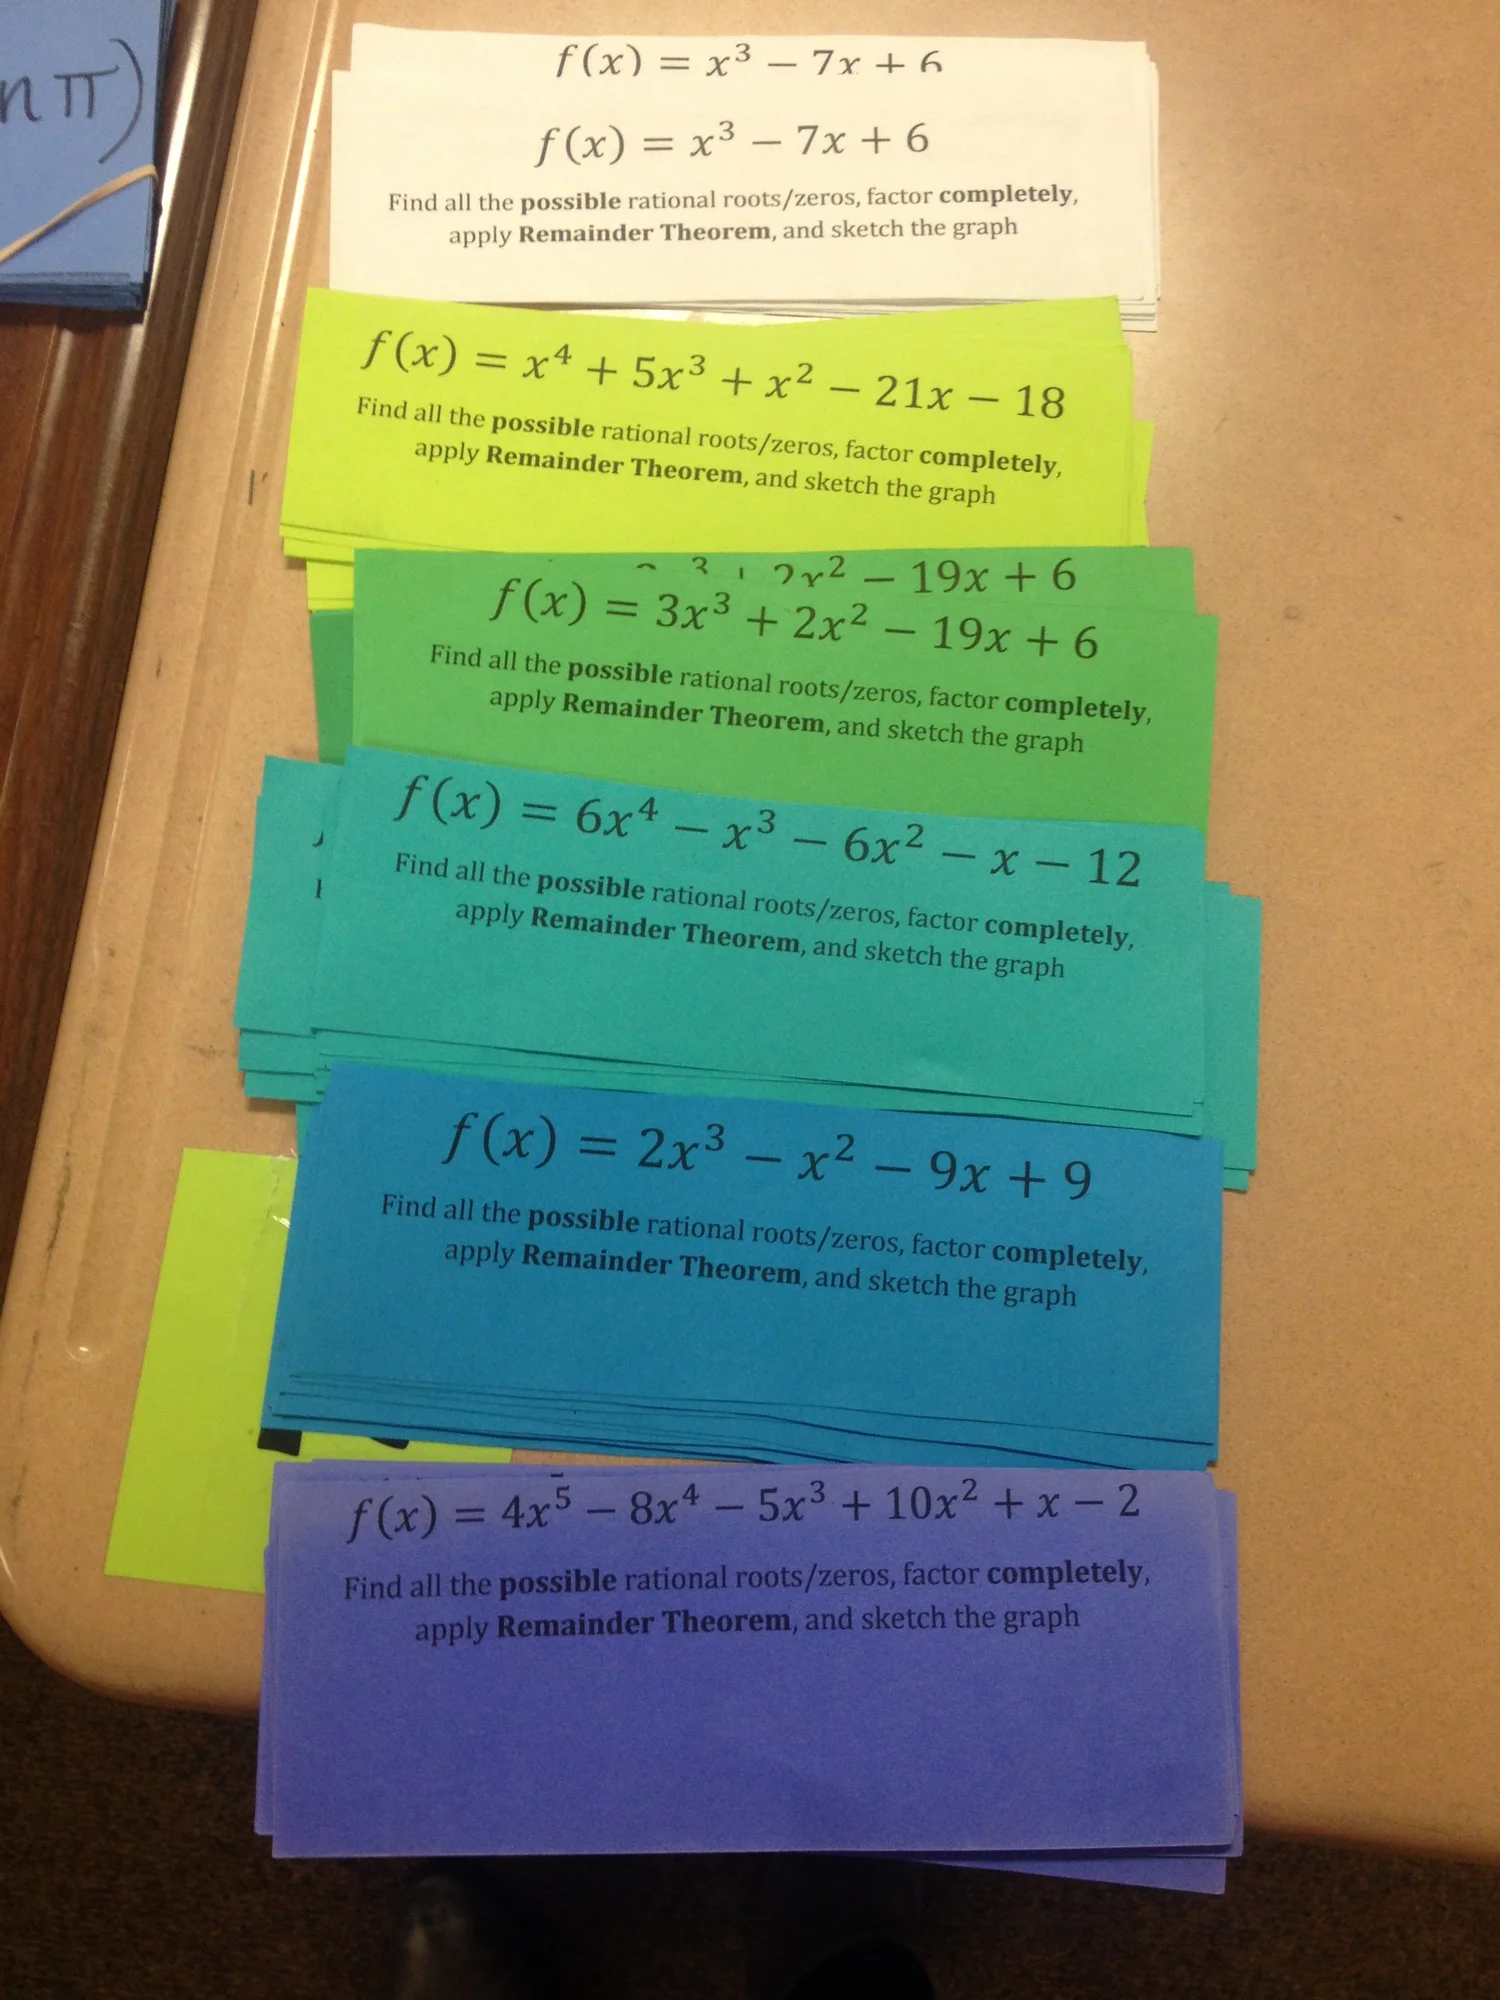 nπ)
f(x) = x³ − 7x + 6
f(x) = x³ − 7x + 6
Find all the possible rational roots/zeros, factor completely,
apply Remainder Theorem, and sketch the graph
f(x) = x⁴ + 5x³ + x² − 21x − 18
Find all the possible rational roots/zeros, factor completely,
apply Remainder Theorem, and sketch the graph
− 19x + 6
f(x) = 3x³ + 2x² − 19x + 6
Find all the possible rational roots/zeros, factor completely,
apply Remainder Theorem, and sketch the graph
f(x) = 6x⁴ − x³ − 6x² − x − 12
Find all the possible rational roots/zeros, factor completely,
apply Remainder Theorem, and sketch the graph
f(x) = 2x³ − x² − 9x + 9
Find all the possible rational roots/zeros, factor completely,
apply Remainder Theorem, and sketch the graph
f(x) = 4x⁵ − 8x⁴ − 5x³ + 10x² + x − 2
Find all the possible rational roots/zeros, factor completely,
apply Remainder Theorem, and sketch the graph